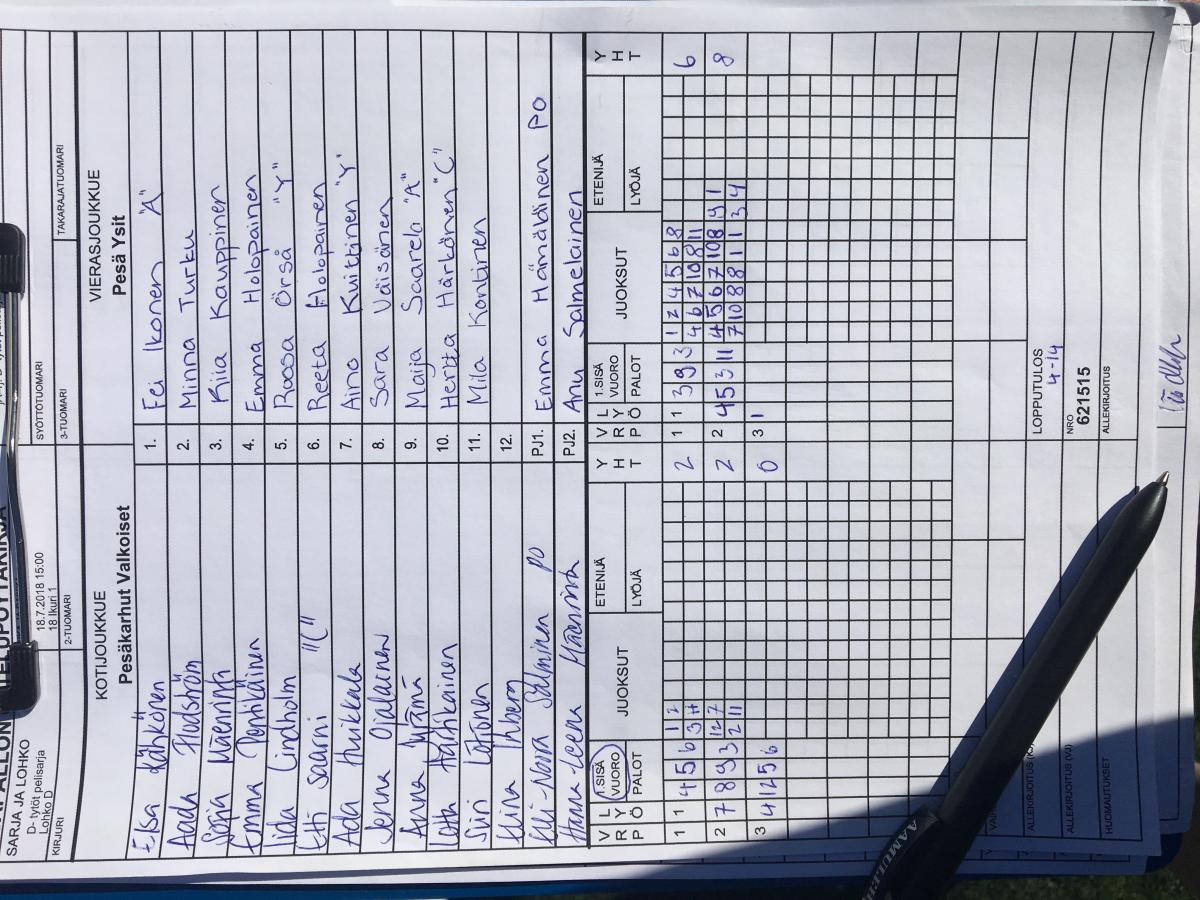 SARJA JA LOHKO
D- tytöt pelisarja
Lohko D
18.7.2018 15:00
18 Ikuri 1
SYÖTTÖTUOMARI
KIRJURI
2-TUOMARI
3-TUOMARI
TAKARAJATUOMARI
KOTIJOUKKUE
VIERASJOUKKUE
Pesäkarhut Valkoiset
Pesä Ysit
Elsa Kähkönen 1. Fei Ikonen "A"
Aada Fludström 2. Minna Turku
3. Kiia Kauppinen
Emma Pentikäinen 4. Emma Holopainen
Iida Lindholm 5. Roosa Örså "Y"
Etti Saarni "C" 6. Reeta Holopainen
Ada Huikkala 7. Aino Kuittinen "Y"
Jenna Ojalainen 8. Sara Väisänen
Anna 9. Maija Saarela "A"
Lotta 10. Hertta Härkönen "C"
Siiri 11. Mila Kontinen
Ihberg 12.
Salminen PO PJ1. Emma Hämäläinen PO
Hanna-Leena Mäenniitä PJ2. Anu Salmelainen
VRP LYÖ 1.SISÄ VUORO PALOT JUOKSUT ETENIJÄ LYÖJÄ YHT VRP LYÖ 1.SISÄ VUORO PALOT JUOKSUT ETENIJÄ LYÖJÄ YHT
1 1 4 5 6 1 2 2 1 1 3 9 3 1 2 4 5 6 8 6
3 4 4 6 7 10 8 11
2 7 8 9 3 12 7 2 2 4 5 3 11 4 5 6 7 10 8 9 1 8
2 11 7 10 8 8 1 1 3 4
3 4 12 5 6 0 3 1
LOPPUTULOS
4-14
ALLEKIRJOITUS
NRO
621515
ALLEKIRJOITUS (VJ)
ALLEKIRJOITUS
HUOMAUTUKSET